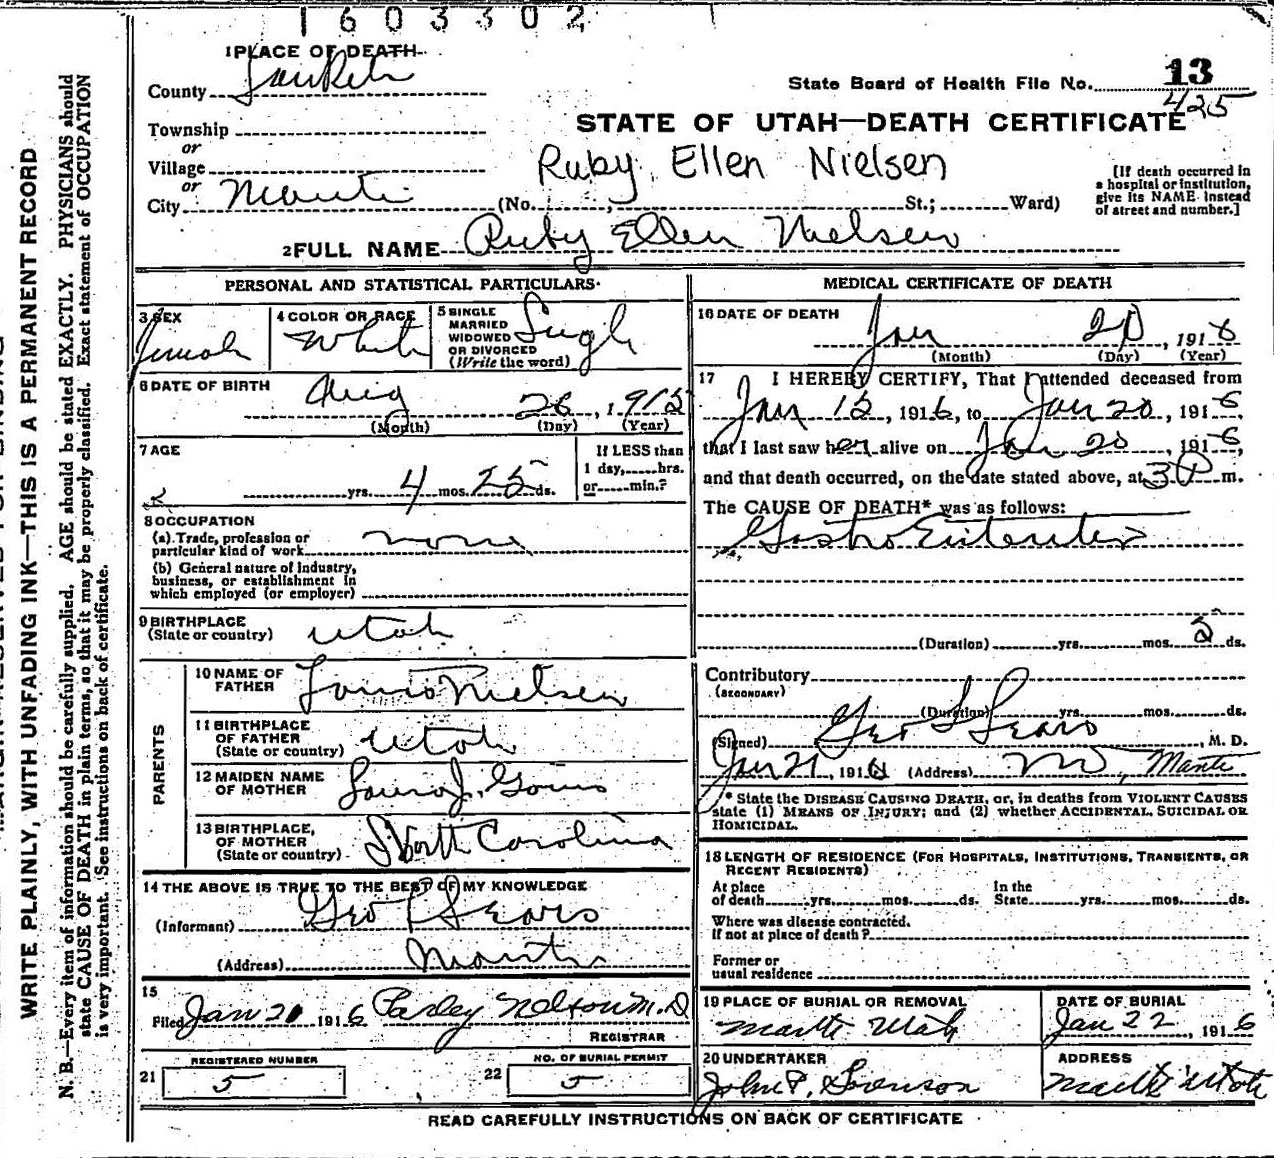 1603302
1 PLACE OF DEATH
County Sanpete
State Board of Health File No. 13
425
Township
or
STATE OF UTAH—DEATH CERTIFICATE
Village
or
Ruby Ellen Nielsen
[If death occurred in
a hospital or institution,
give its NAME instead
of street and number.]
City Manti (No. , St.; Ward)
2 FULL NAME Ruby Ellen Nielsen
PERSONAL AND STATISTICAL PARTICULARS
3 SEX Female
4 COLOR OR RACE White
5 SINGLE
MARRIED
WIDOWED
OR DIVORCED
(Write the word) Single
6 DATE OF BIRTH Aug 26, 1915
(Month) (Day) (Year)
7 AGE
yrs. 4 mos. 25 ds.
If LESS than
1 day, hrs.
or min.?
8 OCCUPATION
(a) Trade, profession or
particular kind of work none
(b) General nature of industry,
business, or establishment in
which employed (or employer)
9 BIRTHPLACE
(State or country) Utah
PARENTS
10 NAME OF
FATHER Nielsen
11 BIRTHPLACE
OF FATHER
(State or country) Utah
12 MAIDEN NAME
OF MOTHER
13 BIRTHPLACE,
OF MOTHER
(State or country) North Carolina
14 THE ABOVE IS TRUE TO THE BEST OF MY KNOWLEDGE
(Informant) Geo L Sears
(Address) Manti
15
Filed Jan 21 1916 Parley Nelson M.D
REGISTRAR
REGISTERED NUMBER
21 5
NO. OF BURIAL PERMIT
22 5
MEDICAL CERTIFICATE OF DEATH
16 DATE OF DEATH
Jan 20, 1916
(Month) (Day) (Year)
17 I HEREBY CERTIFY, That I attended deceased from
Jan 15, 1916, to Jan 20, 1916,
that I last saw her alive on Jan 20, 1916,
and that death occurred, on the date stated above, at 3 P m.
The CAUSE OF DEATH* was as follows:
Gastro Enteritis
(Duration) yrs. mos. 5 ds.
Contributory
(SECONDARY)
(Duration) yrs. mos. ds.
(Signed) Geo L Sears, M. D.
Jan 21, 1916 (Address) MD, Manti
* State the DISEASE CAUSING DEATH, or, in deaths from VIOLENT CAUSES
state (1) MEANS OF INJURY; and (2) whether ACCIDENTAL, SUICIDAL OR
HOMICIDAL.
18 LENGTH OF RESIDENCE (FOR HOSPITALS, INSTITUTIONS, TRANSIENTS, OR
RECENT RESIDENTS)
At place
of death yrs. mos. ds.
In the
State yrs. mos. ds.
Where was disease contracted.
If not at place of death?
Former or
usual residence
19 PLACE OF BURIAL OR REMOVAL
Manti Utah
DATE OF BURIAL
Jan 22, 1916
20 UNDERTAKER
John P. Sorenson
ADDRESS
Manti Utah
READ CAREFULLY INSTRUCTIONS ON BACK OF CERTIFICATE
WRITE PLAINLY, WITH UNFADING INK—THIS IS A PERMANENT RECORD
N. B.—Every item of information should be carefully supplied. AGE should be stated EXACTLY. PHYSICIANS should
state CAUSE OF DEATH in plain terms, so that it may be properly classified. Exact statement of OCCUPATION
is very important. See instructions on back of certificate.